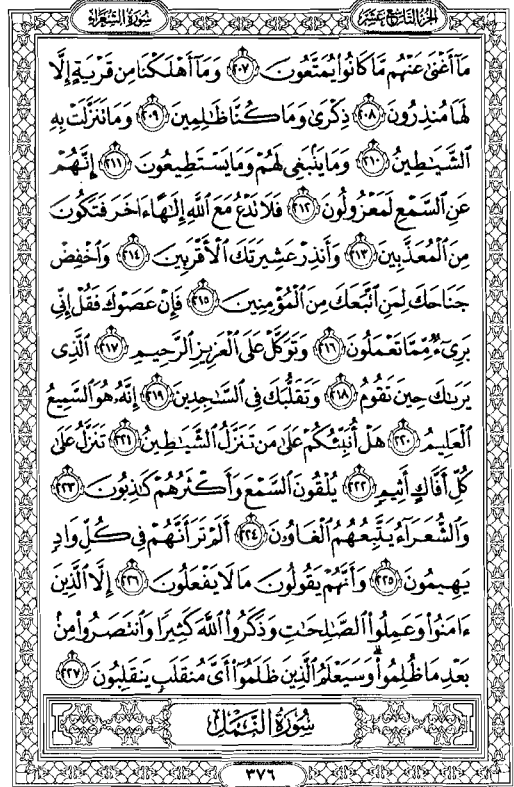 الجزء التاسع عشر
سورة الشعراء
مَا أَغْنَىٰ عَنْهُم مَّا كَانُوا۟ يُمَتَّعُونَ ۝٢٠٧ وَمَا أَهْلَكْنَا مِن قَرْيَةٍ إِلَّا
لَهَا مُنذِرُونَ ۝٢٠٨ ذِكْرَىٰ وَمَا كُنَّا ظَـٰلِمِينَ ۝٢٠٩ وَمَا تَنَزَّلَتْ بِهِ
ٱلشَّيَـٰطِينُ ۝٢١٠ وَمَا يَنۢبَغِى لَهُمْ وَمَا يَسْتَطِيعُونَ ۝٢١١ إِنَّهُمْ
عَنِ ٱلسَّمْعِ لَمَعْزُولُونَ ۝٢١٢ فَلَا تَدْعُ مَعَ ٱللَّهِ إِلَـٰهًا ءَاخَرَ فَتَكُونَ
مِنَ ٱلْمُعَذَّبِينَ ۝٢١٣ وَأَنذِرْ عَشِيرَتَكَ ٱلْأَقْرَبِينَ ۝٢١٤ وَٱخْفِضْ
جَنَاحَكَ لِمَنِ ٱتَّبَعَكَ مِنَ ٱلْمُؤْمِنِينَ ۝٢١٥ فَإِنْ عَصَوْكَ فَقُلْ إِنِّى
بَرِىٓءٌ مِّمَّا تَعْمَلُونَ ۝٢١٦ وَتَوَكَّلْ عَلَى ٱلْعَزِيزِ ٱلرَّحِيمِ ۝٢١٧ ٱلَّذِى
يَرَىٰكَ حِينَ تَقُومُ ۝٢١٨ وَتَقَلُّبَكَ فِى ٱلسَّـٰجِدِينَ ۝٢١٩ إِنَّهُۥ هُوَ ٱلسَّمِيعُ
ٱلْعَلِيمُ ۝٢٢٠ هَلْ أُنَبِّئُكُمْ عَلَىٰ مَن تَنَزَّلُ ٱلشَّيَـٰطِينُ ۝٢٢١ تَنَزَّلُ عَلَىٰ
كُلِّ أَفَّاكٍ أَثِيمٍ ۝٢٢٢ يُلْقُونَ ٱلسَّمْعَ وَأَكْثَرُهُمْ كَـٰذِبُونَ ۝٢٢٣
وَٱلشُّعَرَآءُ يَتَّبِعُهُمُ ٱلْغَاوُۥنَ ۝٢٢٤ أَلَمْ تَرَ أَنَّهُمْ فِى كُلِّ وَادٍ
يَهِيمُونَ ۝٢٢٥ وَأَنَّهُمْ يَقُولُونَ مَا لَا يَفْعَلُونَ ۝٢٢٦ إِلَّا ٱلَّذِينَ
ءَامَنُوا۟ وَعَمِلُوا۟ ٱلصَّـٰلِحَـٰتِ وَذَكَرُوا۟ ٱللَّهَ كَثِيرًا وَٱنتَصَرُوا۟ مِنۢ
بَعْدِ مَا ظُلِمُوا۟ ۗ وَسَيَعْلَمُ ٱلَّذِينَ ظَلَمُوٓا۟ أَىَّ مُنقَلَبٍ يَنقَلِبُونَ ۝٢٢٧
سُورَةُ ٱلنَّمْلِ
٣٧٦